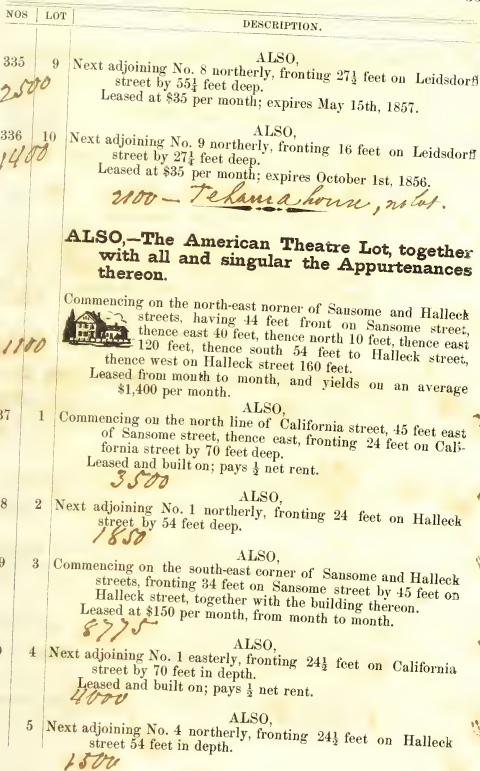 NOS LOT DESCRIPTION.
ALSO,
335 9 Next adjoining No. 8 northerly, fronting 27½ feet on Leidsdorff
street by 55¼ feet deep.
2500
Leased at $35 per month; expires May 15th, 1857.
ALSO,
336 10 Next adjoining No. 9 northerly, fronting 16 feet on Leidsdorff
1400 street by 27¼ feet deep.
Leased at $35 per month; expires October 1st, 1856.
2100 — Tehama house, no lot.
ALSO,—The American Theatre Lot, together
with all and singular the Appurtenances
thereon.
Commencing on the north-east norner of Sansome and Halleck
streets, having 44 feet front on Sansome street,
thence east 40 feet, thence north 10 feet, thence east
120 feet, thence south 54 feet to Halleck street,
thence west on Halleck street 160 feet.
Leased from month to month, and yields on an average
$1,400 per month.
ALSO,
37 1 Commencing on the north line of California street, 45 feet east
of Sansome street, thence east, fronting 24 feet on Cali-
fornia street by 70 feet deep.
Leased and built on; pays ½ net rent.
3500
ALSO,
8 2 Next adjoining No. 1 northerly, fronting 24 feet on Halleck
street by 54 feet deep.
1850
ALSO,
9 3 Commencing on the south-east corner of Sansome and Halleck
streets, fronting 34 feet on Sansome street by 45 feet on
Halleck street, together with the building thereon.
Leased at $150 per month, from month to month.
8775
ALSO,
4 Next adjoining No. 1 easterly, fronting 24½ feet on California
street by 70 feet in depth.
Leased and built on; pays ½ net rent.
4000
ALSO,
5 Next adjoining No. 4 northerly, fronting 24½ feet on Halleck
street 54 feet in depth.
1500